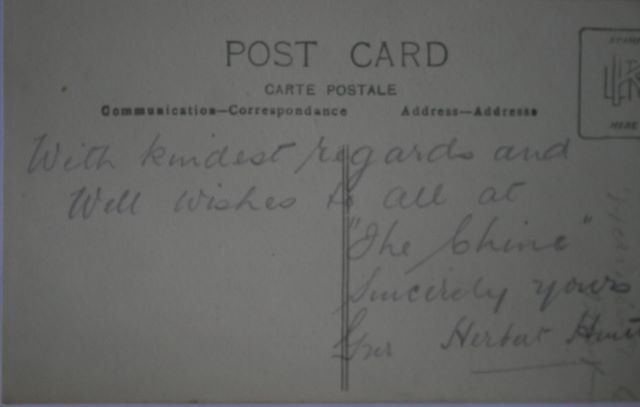 POST CARD
CARTE POSTALE
Communication—Correspondance Address—Addresse
STAMP
HERE
With kindest regards and
Well wishes to all at
"The Chine"
Sincerely yours
Gnr Herbert Hunt